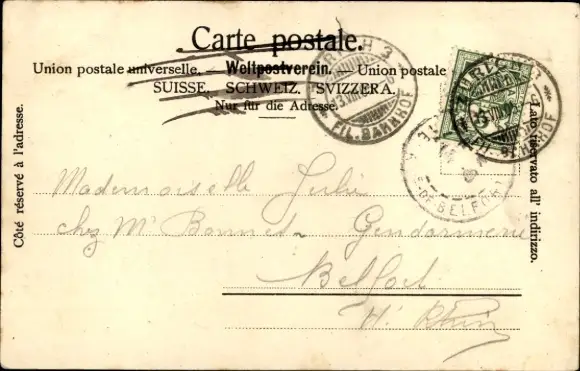 Carte postale.
Union postale universelle. — Weltpostverein. — Union postale
SUISSE. SCHWEIZ. SVIZZERA.
Nur für die Adresse.
Côté réservé à l'adresse.
Lato riservato all' indirizzo.
ZÜRICH 3
FIL. BAHNHOF
ZÜRICH 3
FIL. BAHNHOF
BELFORT
Mademoiselle Julie
chez Mr Bonnet - Gendarmerie
Belfort
Ht Rhin